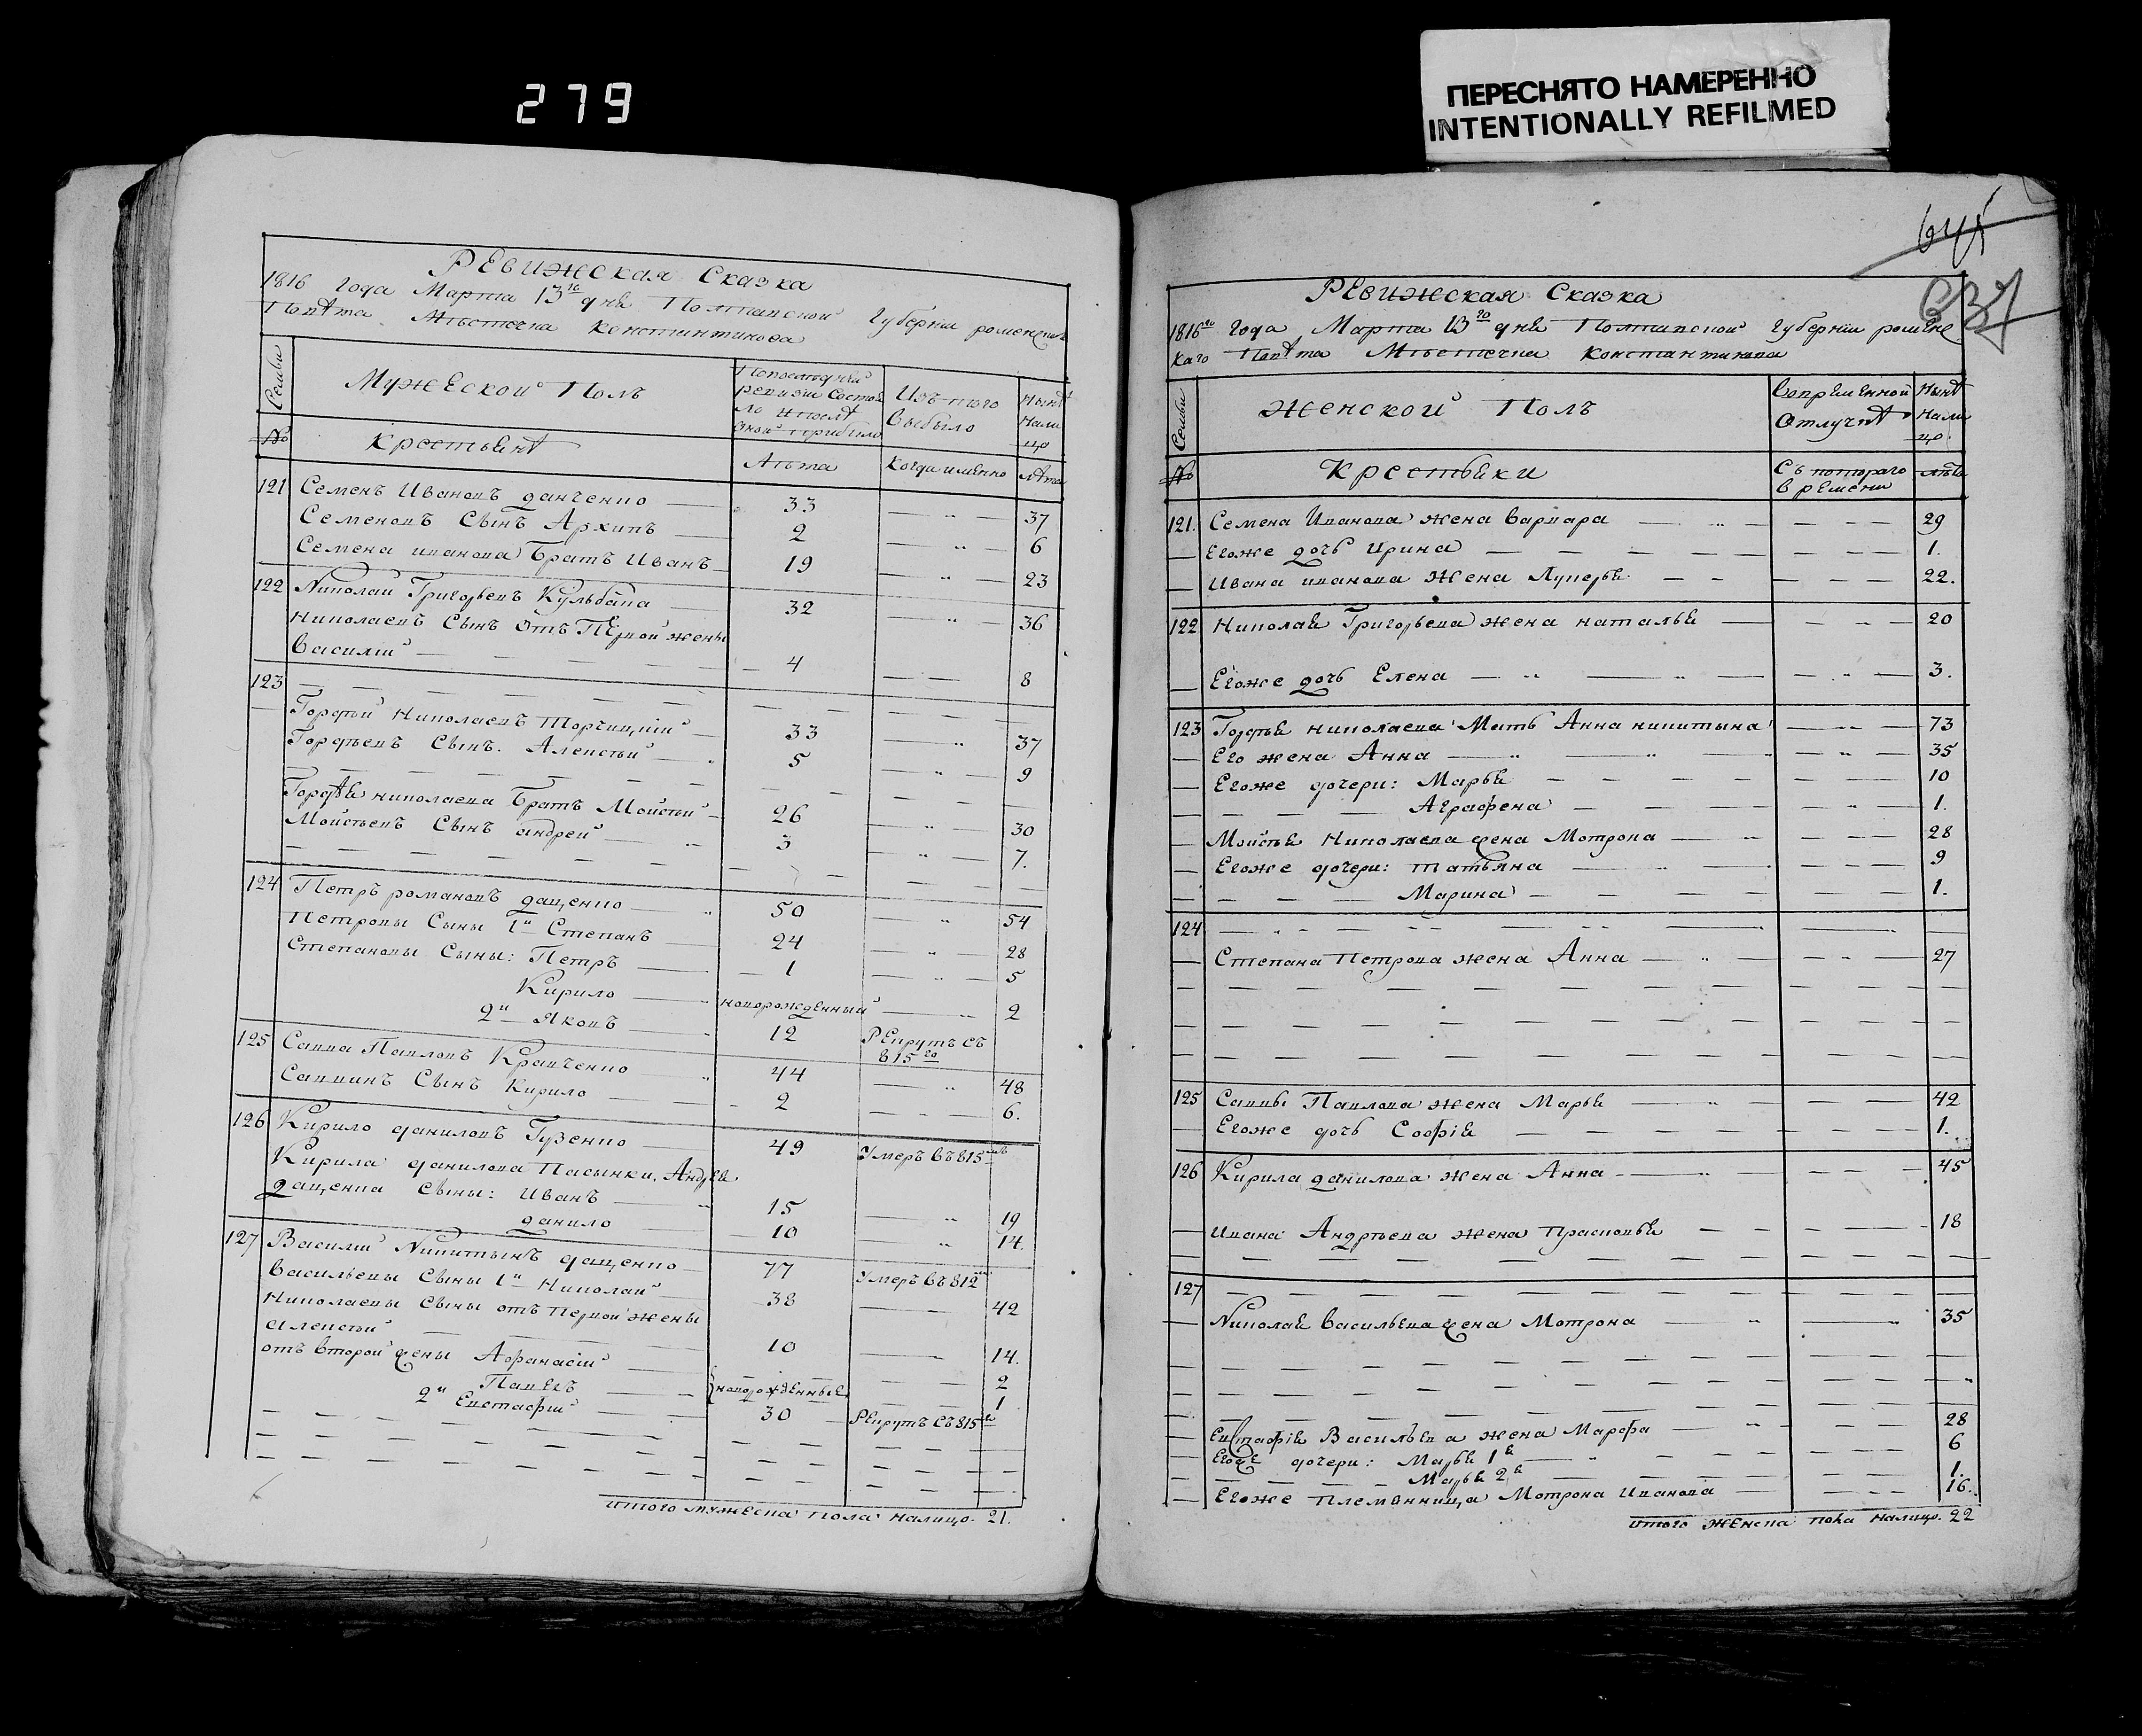 279
ПЕРЕСНЯТО НАМЕРЕННО
INTENTIONALLY REFILMED
РЕвижская Сказка
1816 года Марта 13го дня Полтавской Губернiи роменскаго
Повѣта Мѣстечка Константинова
Семьи
Мужеской Полъ
По последней
ревизiи состоя
ло и после
оной прибыло
Изъ того
выбыло
Нынѣ
Нали
цо
№
Крестьянѣ
Лѣта
когда именно
лѣта
121 Семенъ Ивановъ данченко 33 37
Семеновъ Сынъ Архипъ 2 6
Семена иванова Братъ Иванъ 19 23
122 Николай Григорьевъ Кульбака 32 36
Николаевъ Сынъ Отъ Первой жены
Василiй 4 8
123
Гордѣй Николаевъ Торчицкiй 33 37
Гордѣевъ Сынъ. Алексѣй 5 9
Гордѣя николаева Братъ Мойсѣй 26 30
Мойсѣевъ Сынъ андрей 3 7.
124 Петръ романовъ дащенко 50 54
Петровы Сыны 1й Степанъ 24 28
Степановы Сыны: Петръ 1 5
Кирило новорожденный 2
2й Яковъ 12 РЕкрутъ съ 815го
125 Савва Павловъ Кравченко 44 48
Саввинъ Сынъ Кирило 2 6.
126 Кирило даниловъ Гузенко 49 Умеръ въ 815мъ
Кирила данилова Пасынки, Андрея
дащенка Сыны: Иванъ 15 19
данило 10 14.
127 Василiй Никитынъ дащенко 77 Умеръ въ 812мъ
Васильевы Сыны 1й Николай 38 42
Николаевы Сыны отъ Первой жены
Алексѣй 10 14.
отъ второй жены Афанасiй 2
Павелъ новорожденные 1
2й Евстафiй 30 РЕкрутъ съ 815го
итого мужеска пола налицо. 21.
637
РЕвижская Сказка
1816го года Марта 13го дня Полтавской Губернiи роменс
каго Повѣта Мѣстечка Константинова
Семьи
Женской Полъ
Вовременной
Отлучкѣ
Нынѣ
Нали
цо.
№
Крестьянки
Съ котораго
времени
лѣта
121. Семена Иванова жена варвара 29
Егоже дочь Ирина 1.
Ивана иванова Жена Лукерья 22.
122 Николая Григорьева жена наталья 20
Егоже дочь Елена 3.
123 Гордѣя николаева Мать Анна никитына 73
Его жена Анна 35
Егоже дочери: Марья 10
Аграфена 1.
Мойсѣя Николаева жена Мотрона 28
Егоже дочери: татьяна 9
Марина 1.
124
Степана Петрова жена Анна 27
125 Саввы Павлова жена Марья 42
Егоже дочь Софiя 1.
126 Кирила данилова жена Анна 45
Ивана Андрѣева жена Прасковья 18
127
Николая васильева жена Мотрона 35
Евстафiя Васильева жена Марфа 28
Егоже дочери: Марья 1я 6
Марья 2я 1.
Егоже племянница Мотрона Иванова 16.
итого женска пола налицо. 22